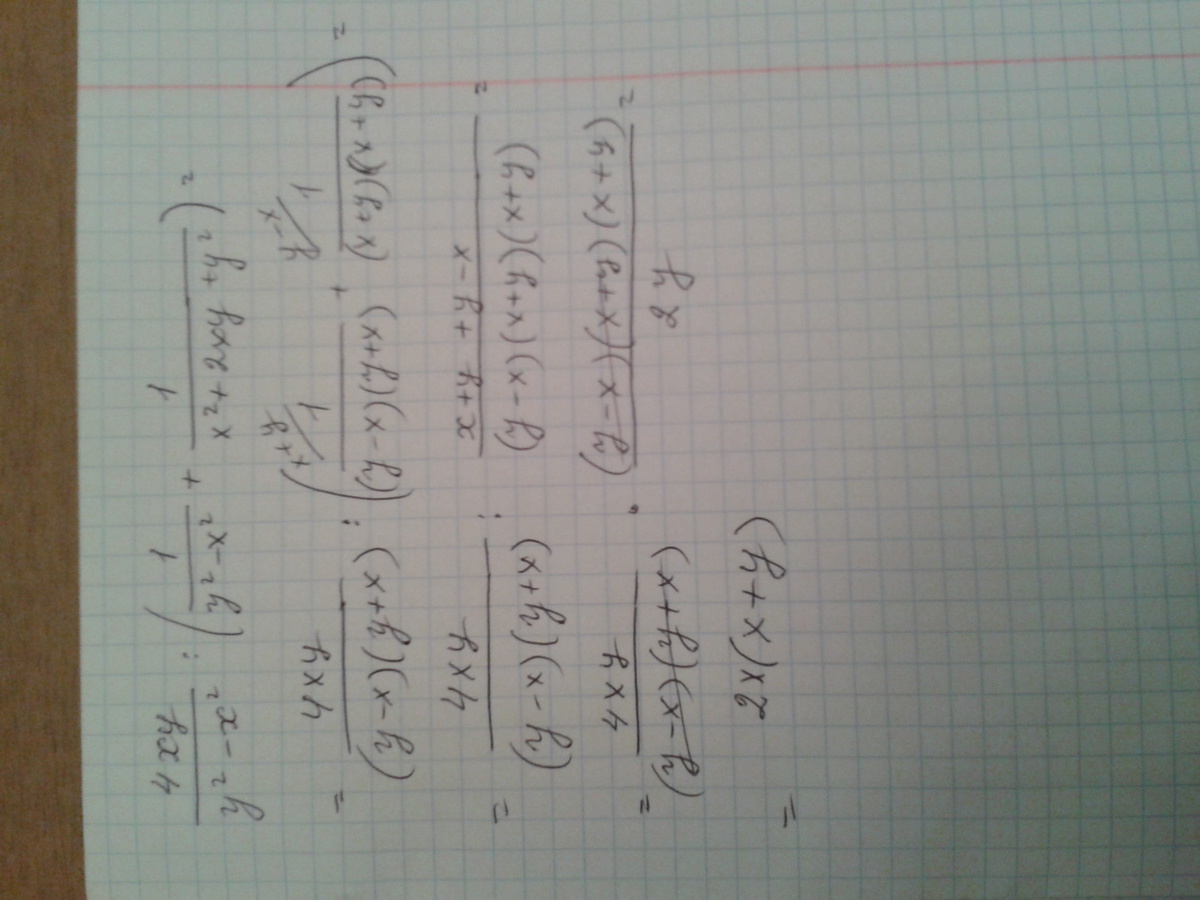 4xy / (y² - x²) : (1 / (y² - x²) + 1 / (x² + 2xy + y²)) =
= 4xy / ((y-x)(y+x)) : (1^{x+y} / ((y-x)(y+x)) + 1^{y-x} / ((x+y)(x+y))) =
= 4xy / ((y-x)(y+x)) : (x+y + y-x) / ((y-x)(x+y)(x+y)) =
= 4xy / ((y-x)(y+x)) · (y-x)(x+y)(x+y) / 2y =
= 2x(x+y)